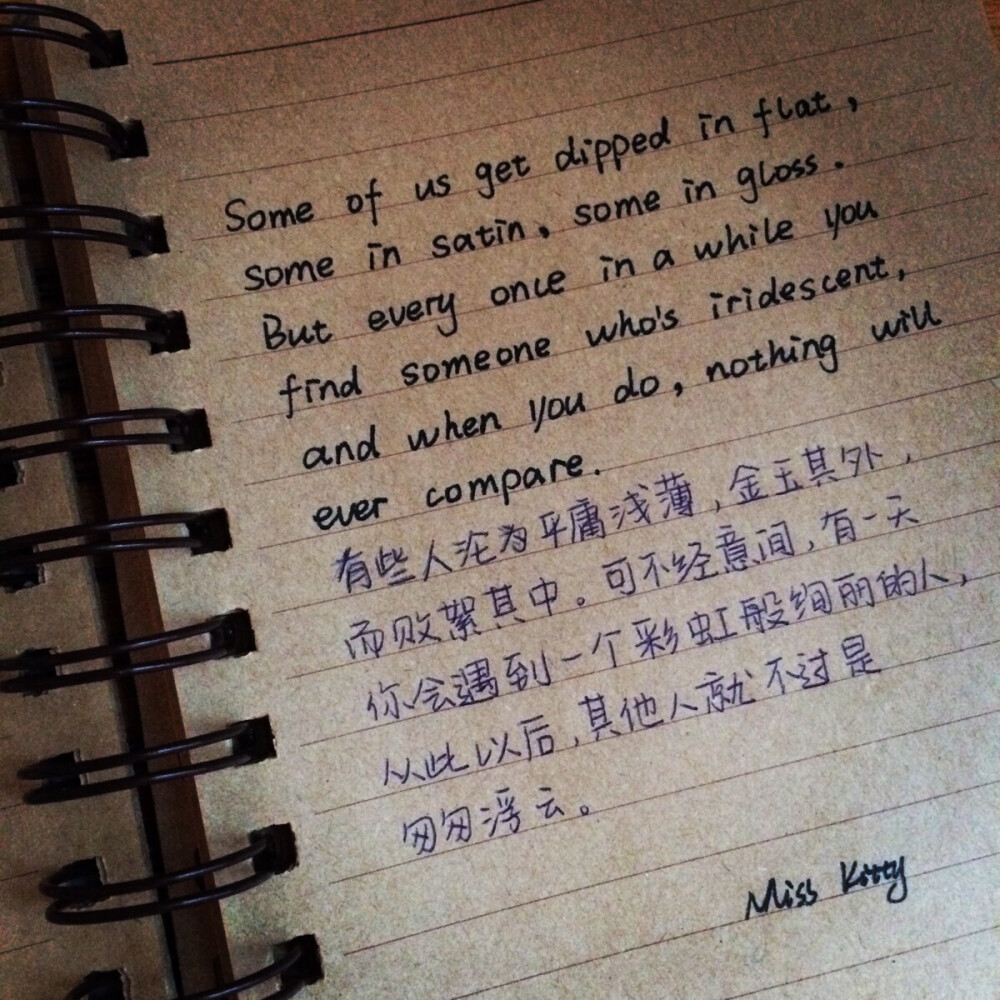 Some of us get dipped in flat,
some in satin, some in gloss.
But every once in a while you
find someone who's iridescent,
and when you do, nothing will
ever compare.
有些人沦为平庸浅薄,金玉其外,
而败絮其中。可不经意间,有一天
你会遇到一个彩虹般绚丽的人,
从此以后,其他人就不过是
匆匆浮云。
Miss Kitty